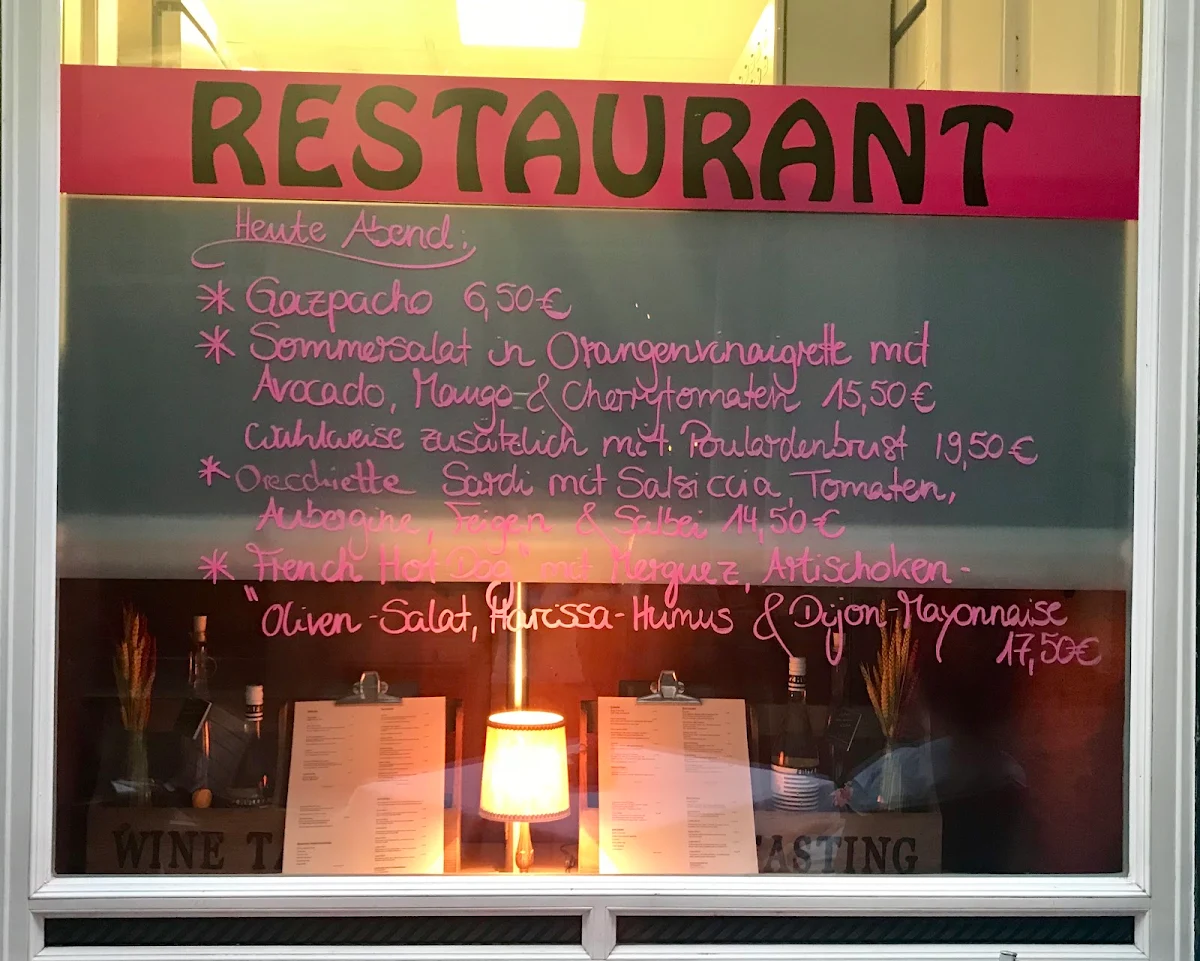 RESTAURANT
Heute Abend:
* Gazpacho 6,50€
* Sommersalat in Orangenvinaigrette mit
Avocado, Mango & Cherrytomaten 15,50€
wahlweise zusätzlich mit Poulardenbrust 19,50€
* Orecchiette Sardi mit Salsiccia, Tomaten,
Aubergine, Feigen & Salbei 14,50€
* "French Hot Dog" mit Merguez, Artischoken-
Oliven-Salat, Harissa-Humus & Dijon-Mayonnaise
17,50€
WINE TA
TASTING